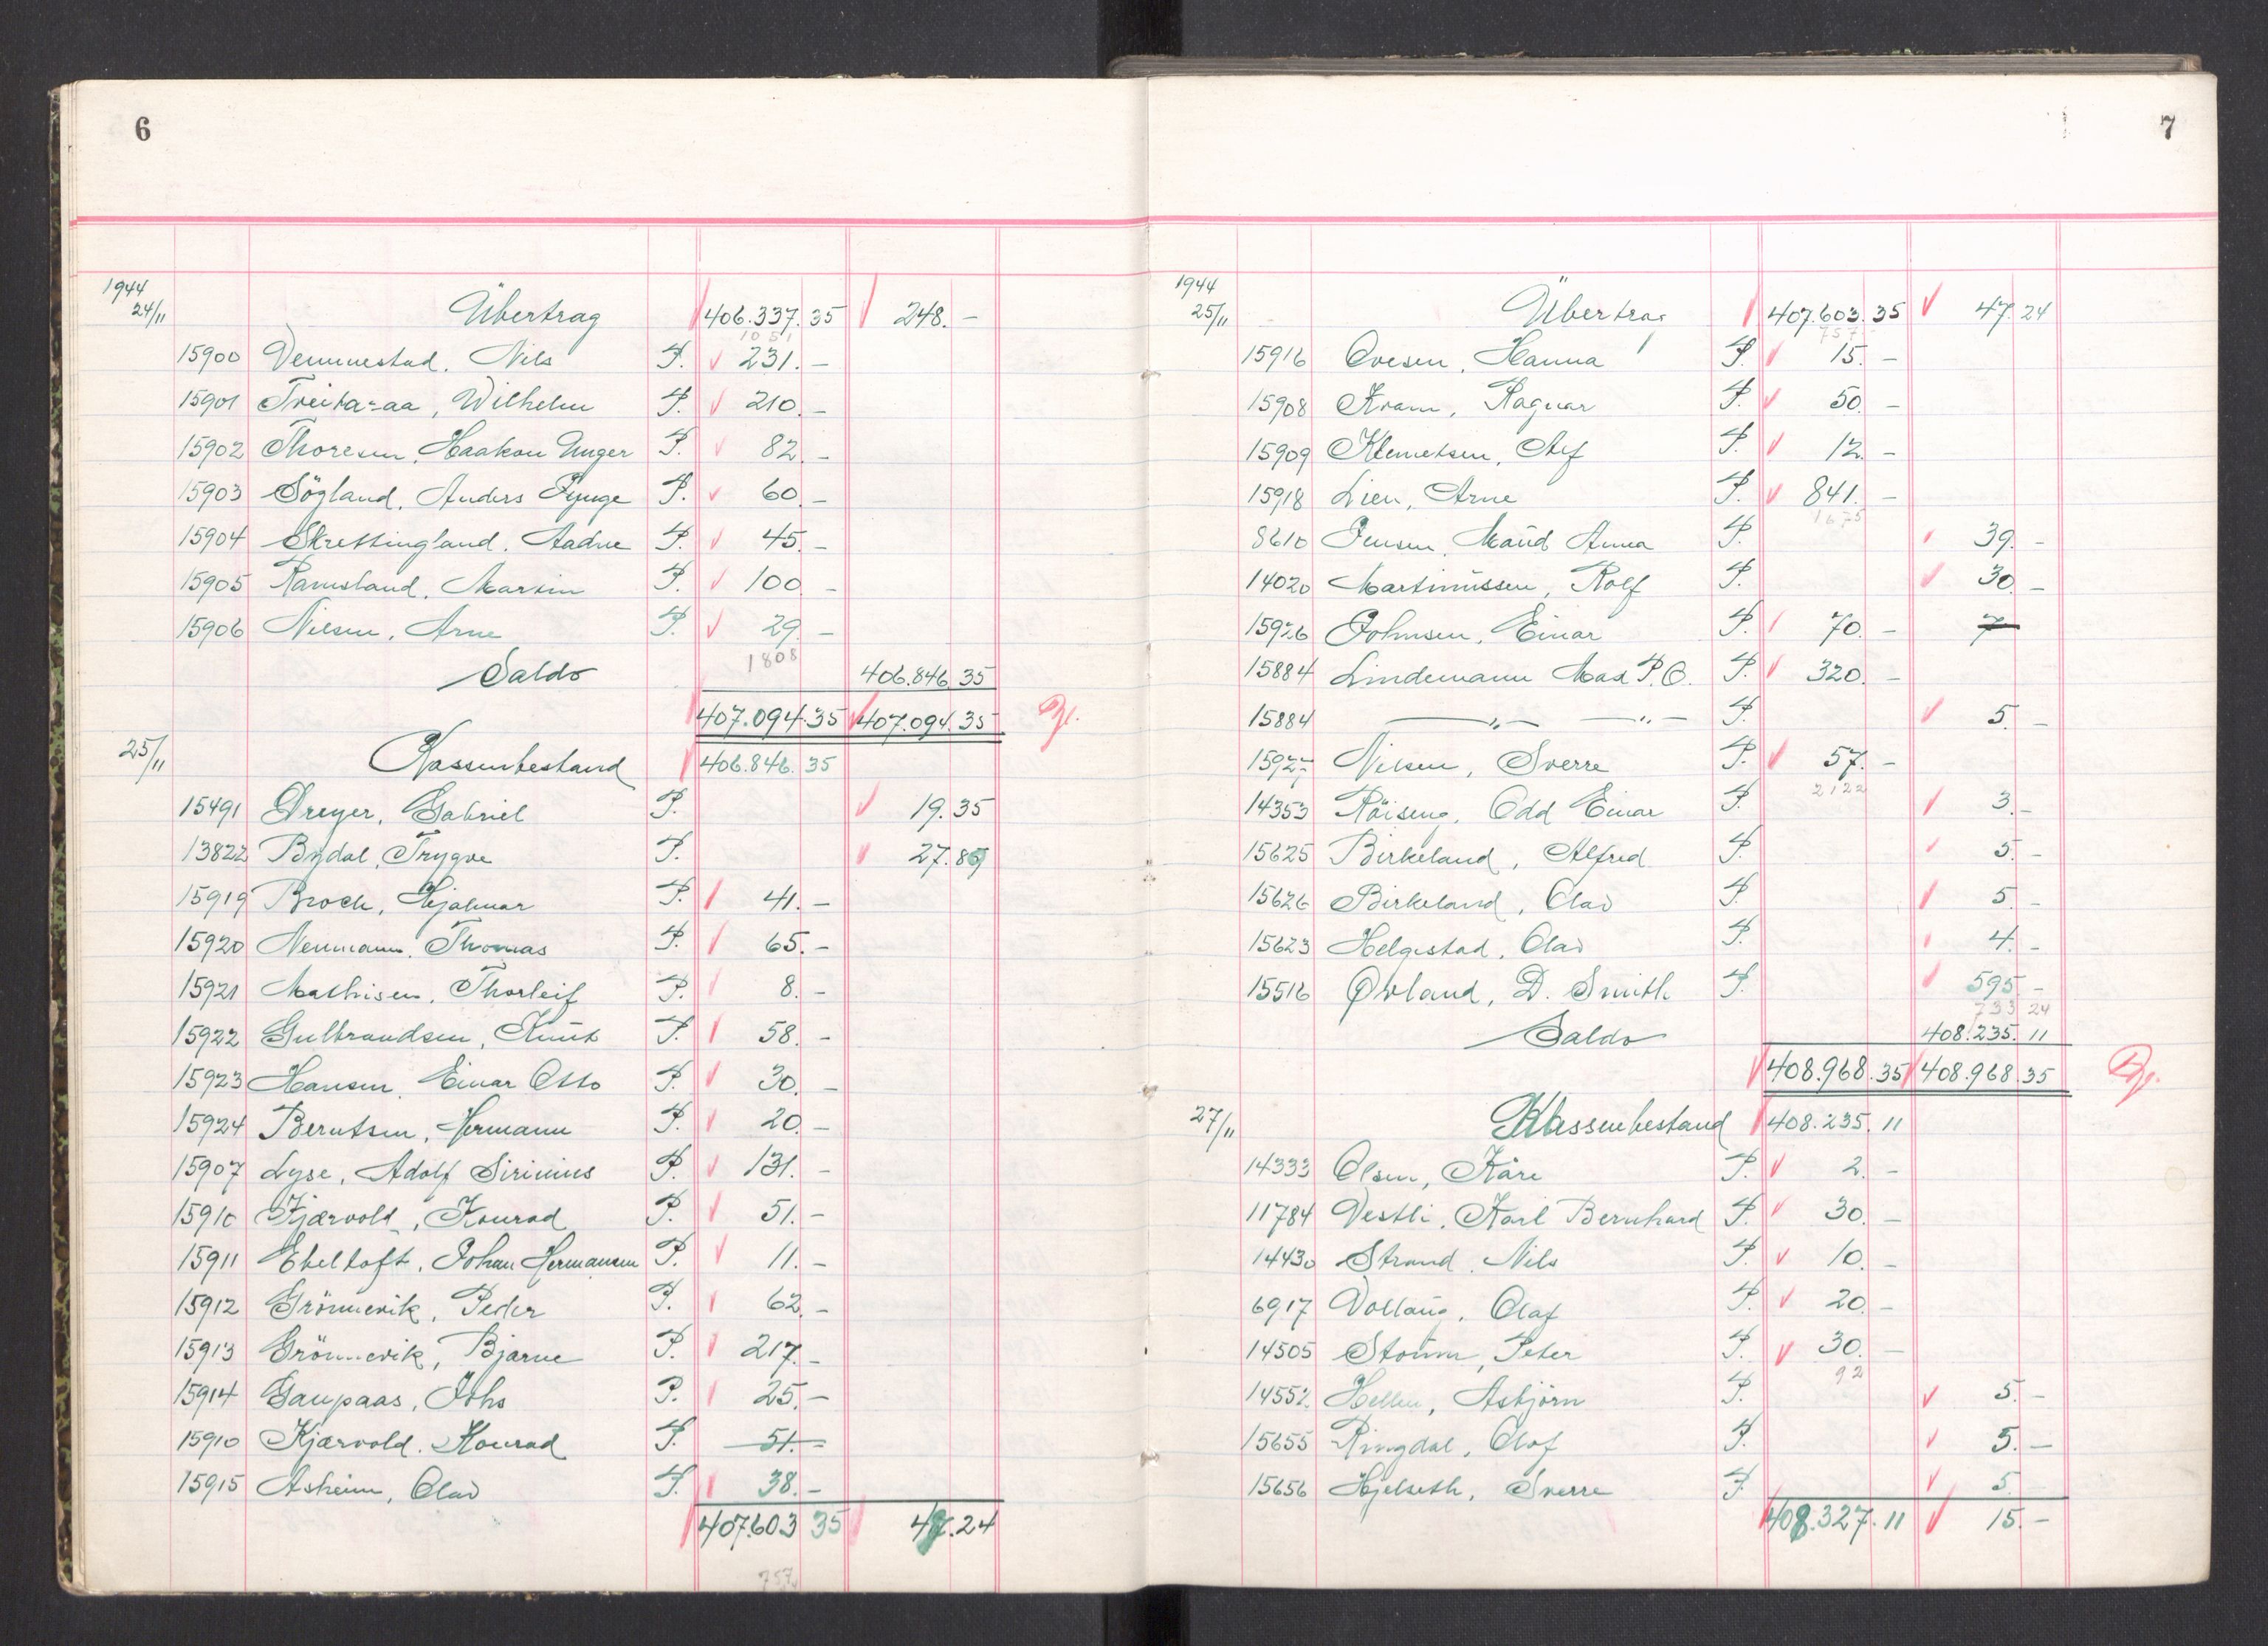 6
1944
24/11 Übertrag 406.337.35 248.-
1051
15900 Vemmestad, Nils P. 231.-
15901 Treitaraa, Wilhelm P. 210.-
15902 Thoresen, Haakon Unger P. 82.-
15903 Sögland, Anders Tynge P. 60.-
15904 Skrettingland, Aadne P. 45.-
15905 Ramsland, Martin P. 100.-
15906 Nilsen, Arne P. 29.-
1808
Saldo 406.846.35
407.094.35 407.094.35
25/11 Kassenbestand 406.846.35
15491 Dreyer, Gabriel P. 19.35
13822 Bydal, Trygve P. 27.89
15919 Broch, Hjalmar P. 41.-
15920 Neumann, Thomas P. 65.-
15921 Mathisen, Thorleif P. 8.-
15922 Gulbrandsen, Knut P. 58.-
15923 Hansen, Einar Otto P. 30.-
15924 Berntsen, Hermann P. 20.-
15907 Lyse, Adolf Sirinius P. 131.-
15910 Kjærvold, Konrad P. 51.-
15911 Ebeltoft, Johan Hermansen P. 11.-
15912 Grönnevik, Peder P. 62.-
15913 Grönnevik, Bjarne P. 217.-
15914 Gaupaas, Johs P. 25.-
15910 Kjærvold, Konrad P. 51.-
15915 Asheim, Olav P. 38.-
407.603 35 47.24
757
7
1944
25/11 Übertrag 407.603.35 47.24
757.-
15916 Ovesen, Hanna P. 15.-
15908 Kvam, Ragnar P. 50.-
15909 Klemetsen, Alf P. 12.-
15918 Lien, Arne P. 841.-
1675
8610 Jensen, Maud Anna P. 39.-
14020 Martinussen, Rolf P. 30.-
15926 Johnsen, Einar P. 70.- 7
15884 Lindemann Max P.O. P. 320.-
15884 —„— —„— P. 5.-
15927 Nilsen, Sverre P. 57.-
2122
14353 Röiseng, Odd Einar P. 3.-
15625 Birkeland, Alfred P. 5.-
15626 Birkeland, Olav P. 5.-
15623 Helgestad, Olav P. 4.-
15516 Ørland, D. Smith P. 595.-
733 24
Saldo 408.235.11
408.968.35 408.968.35
27/11 Kassenbestand 408.235.11
14333 Olsen, Kåre P. 2.-
11784 Vestli, Karl Bernhard P. 30.-
14430 Strand, Nils P. 10.-
6917 Vollaug, Olaf P. 20.-
14505 Storm, Peter P. 30.-
92
14552 Hellen, Asbjörn P. 5.-
15655 Ringdal, Olof P. 5.-
15656 Hjelseth, Sverre P. 5.-
408.327.11 15.-